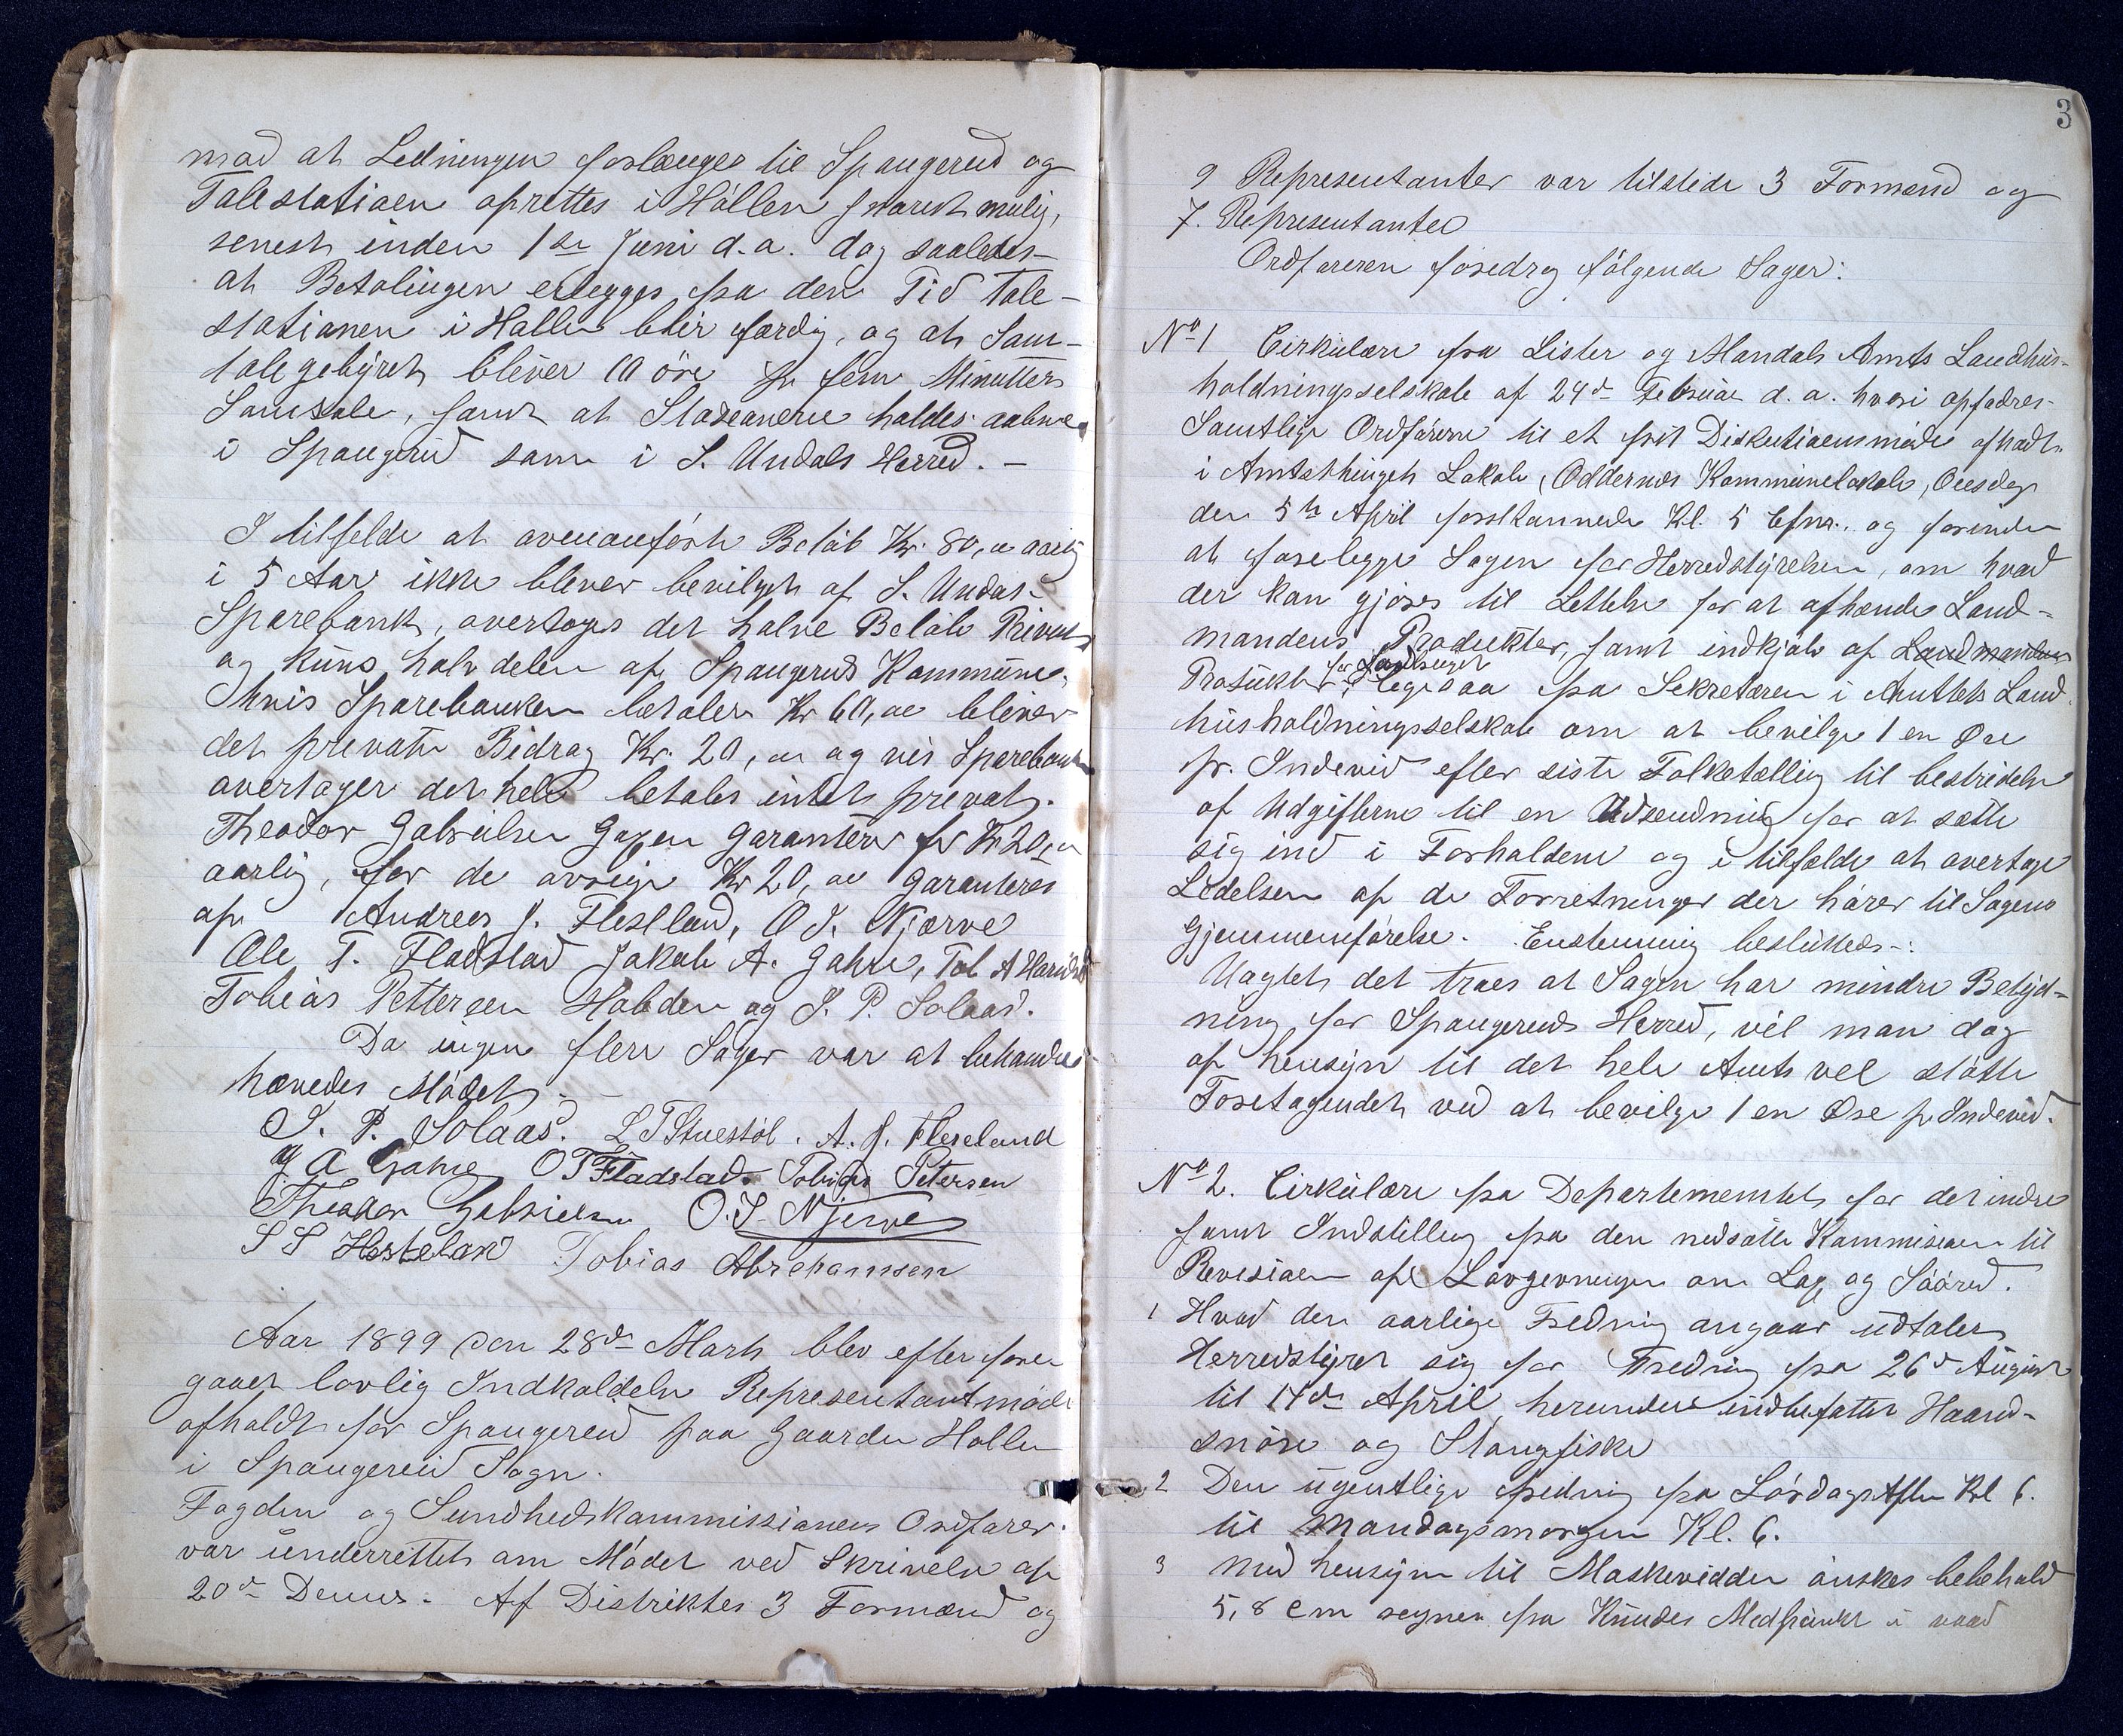 mod at Ledningen forlænges til Spangereid og
Talestationen oprettes i Höllen snarest mulig,
senest inden 1ste Juni d.a. dog saaledes
at Betalingen erlegges fra den Tid Tale-
stationen i Hallen blir færdig, og at Sam-
talegebyret bliver 10 öre pr fem Minutters
Samtale, samt at Stasjonerne holdes aabne
i Spangereid som i S. Undals Herred. -
I tilfelde at ovenanförte Belöb Kr. 80,00 aarlig
i 5 Aar ikke blever bevilget af S. Undals
Sparebank, overtoges det halve Belöb Privat
og kuns halvdelen af Spangereids Kommune,
Hvis Sparebanken betaler Kr 60,00 blever
det private Bidrag Kr. 20,00 og vis Sparebanken
overtager det hele betales intet prevat.
Theodor Gabrielsen Gahre garanterer for Kr 20,00
aarlig, for de övrige Kr 20,00 garanteres
af Andreas J. Fleseland, O. S. Njærve
Ole T. Fladstad Jakob A. Gahre, Tob A Harids
Tobias Pettersen Hobden og J. P. Solaas.
Da ingen flere Sager var at behandle
hævedes Mödet. -
J. P. Solaas. L T Stuestöl. A. J. Fleseland
J A Gahre O T Fladstad Tobias Petersen
Theodor Gabrielsen O. S. Njerve
S S Hestelan Tobias Abrehamsen
Aar 1899 den 28de Marts blev efter fore-
gaaet lovlig Indkaldelse Representantmöde
afholdt for Spangereid paa Gaarden Hollen
i Spangereid Sogn.
Fogden og Sundhedskommissionens Ordförer
var underrettet om Mödet ved Skrivelse af
20de Dennes. Af Distriktes 3 Formænd og
3
9 Representanter var tilstede 3 Formænd og
7. Representanter
Ordföreren foredrog fölgende Sager:
No 1 Cirkulære fra Lister og Mandals Amts Landhus-
holdningsselskab af 24de Februar d.a. hvori opfodres
Samtlige Ordförerne til et frit Diskutionsmöde afholdt
i Amtsthingets Lokale, Oddernes Kommunelokale, Onsdag
den 5te April förstkommende Kl. 5 Efm. og forinden
at forelegge Sagen for Herredstyrelsen, om hvad
der kan gjöres til Lettelse for at afhænde Land-
mandens Produkter, samt indkjöb af Landmandens
for Landbruget
Produkter, ligesaa fra Sekretæren i Amtets Land-
husholdningsselskab om at bevilge 1 en Öre
pr. Indevid efter siste Folketælling til bestridelse
af Udgifterne til en Udsendning for at sætte
sig ind i Forholdene og i tilfælde at overtage
Ledelsen af de Forretninger der hörer til Sagens
Gjennemförelse. Enstemmig besluttes -:
Uagtet det troes at Sagen har mindre Betyd-
ning for Spangereids Herred, vil man dog
af hensyn til det hele Amt vel stötte
Foretagendet ved at bevilge 1 en Öre pr Indevid.
No 2. Cirkulære fra Departementet for det indre
samt Indstilling fra den nedsatte Kommission til
Revision af Lovgevningen om Lax og Söörred.
1 Hvad den aarlige Fredning angaar udtaler
Herredstyret sig for Fredning fra 26de August
til 14de April herunder indbefattet Haand-
snöre og Stangfiske
2 Den ugentlige fredning fra Lördags Aften Kl 6.
til Mandagsmorgen Kl. 6.
3 Med hensyn til Maskevidden önskes bebehold
5,8 cm regnet fra Knudes Medpunkt i vaad